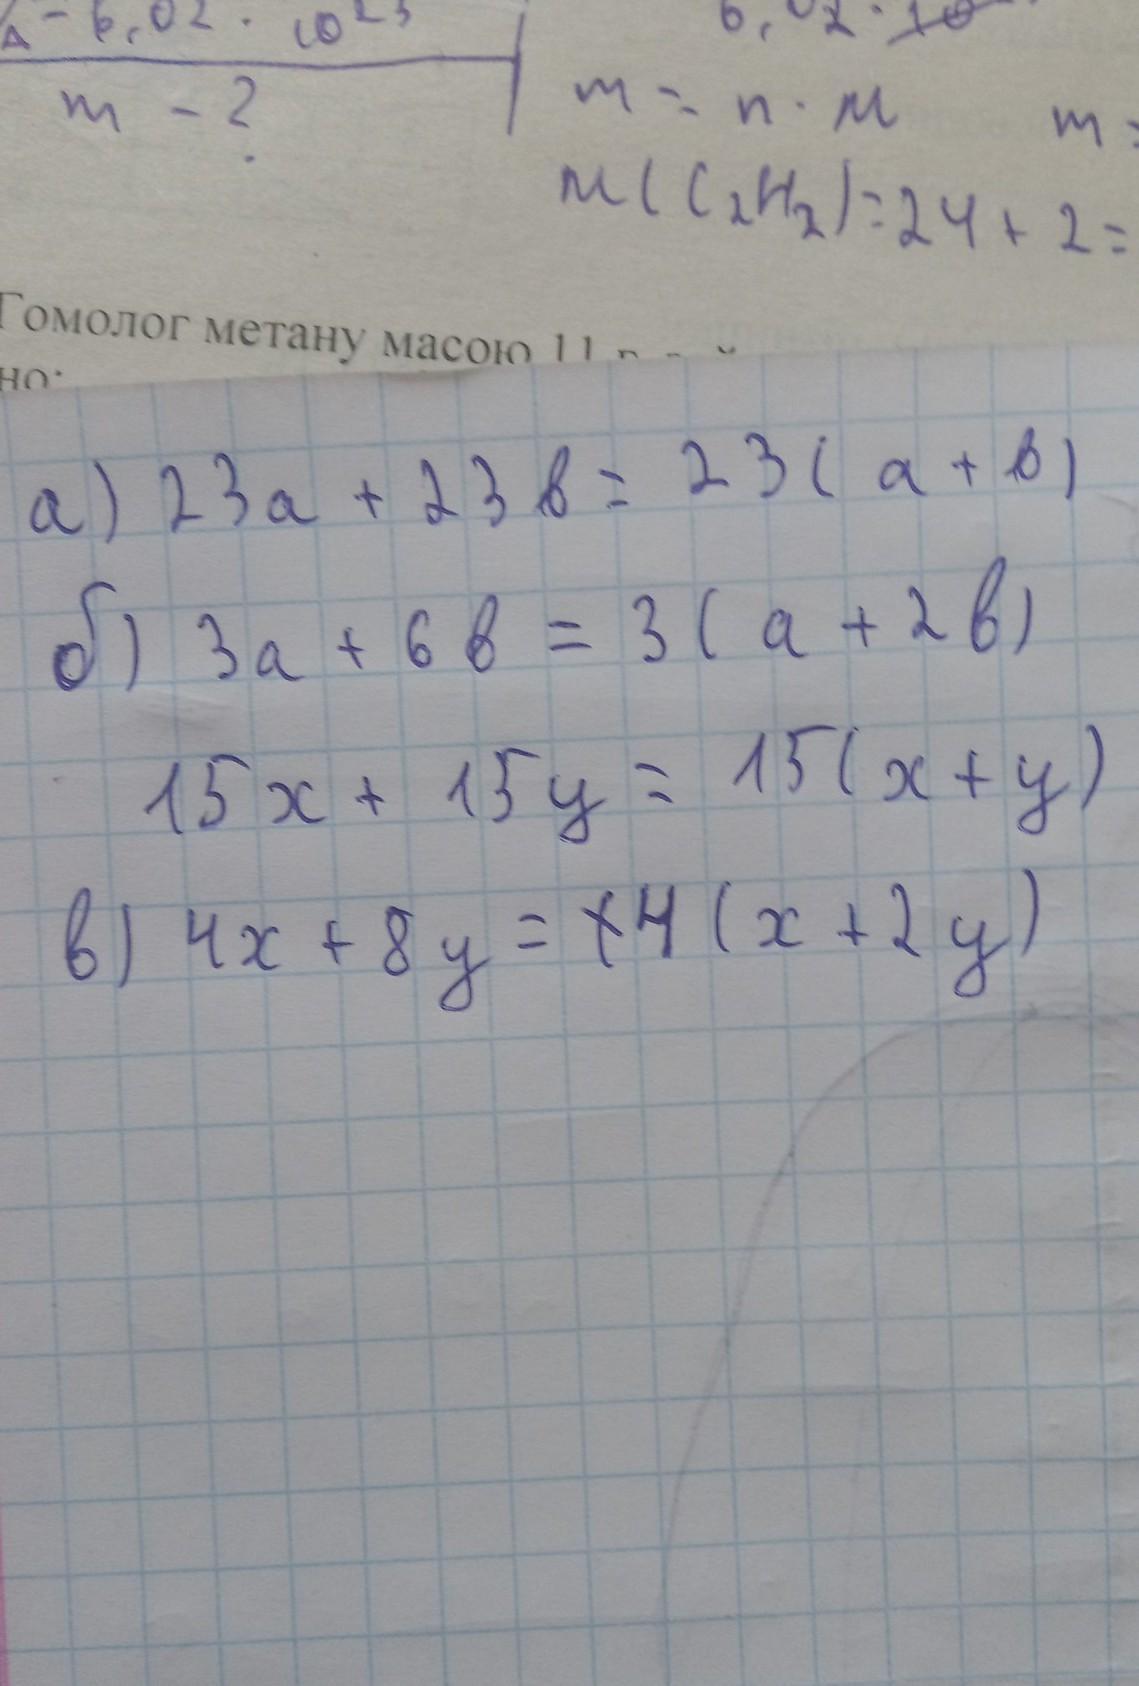 = 6,02 · 10²³
m - ?
m = n · M m =
M(C₂H₂)=24+2=
Гомолог метану масою 11
но:
а) 23a + 23b = 23(a+b)
б) 3a + 6b = 3(a+2b)
15x + 15y = 15(x+y)
в) 4x+8y = 4(x+2y)